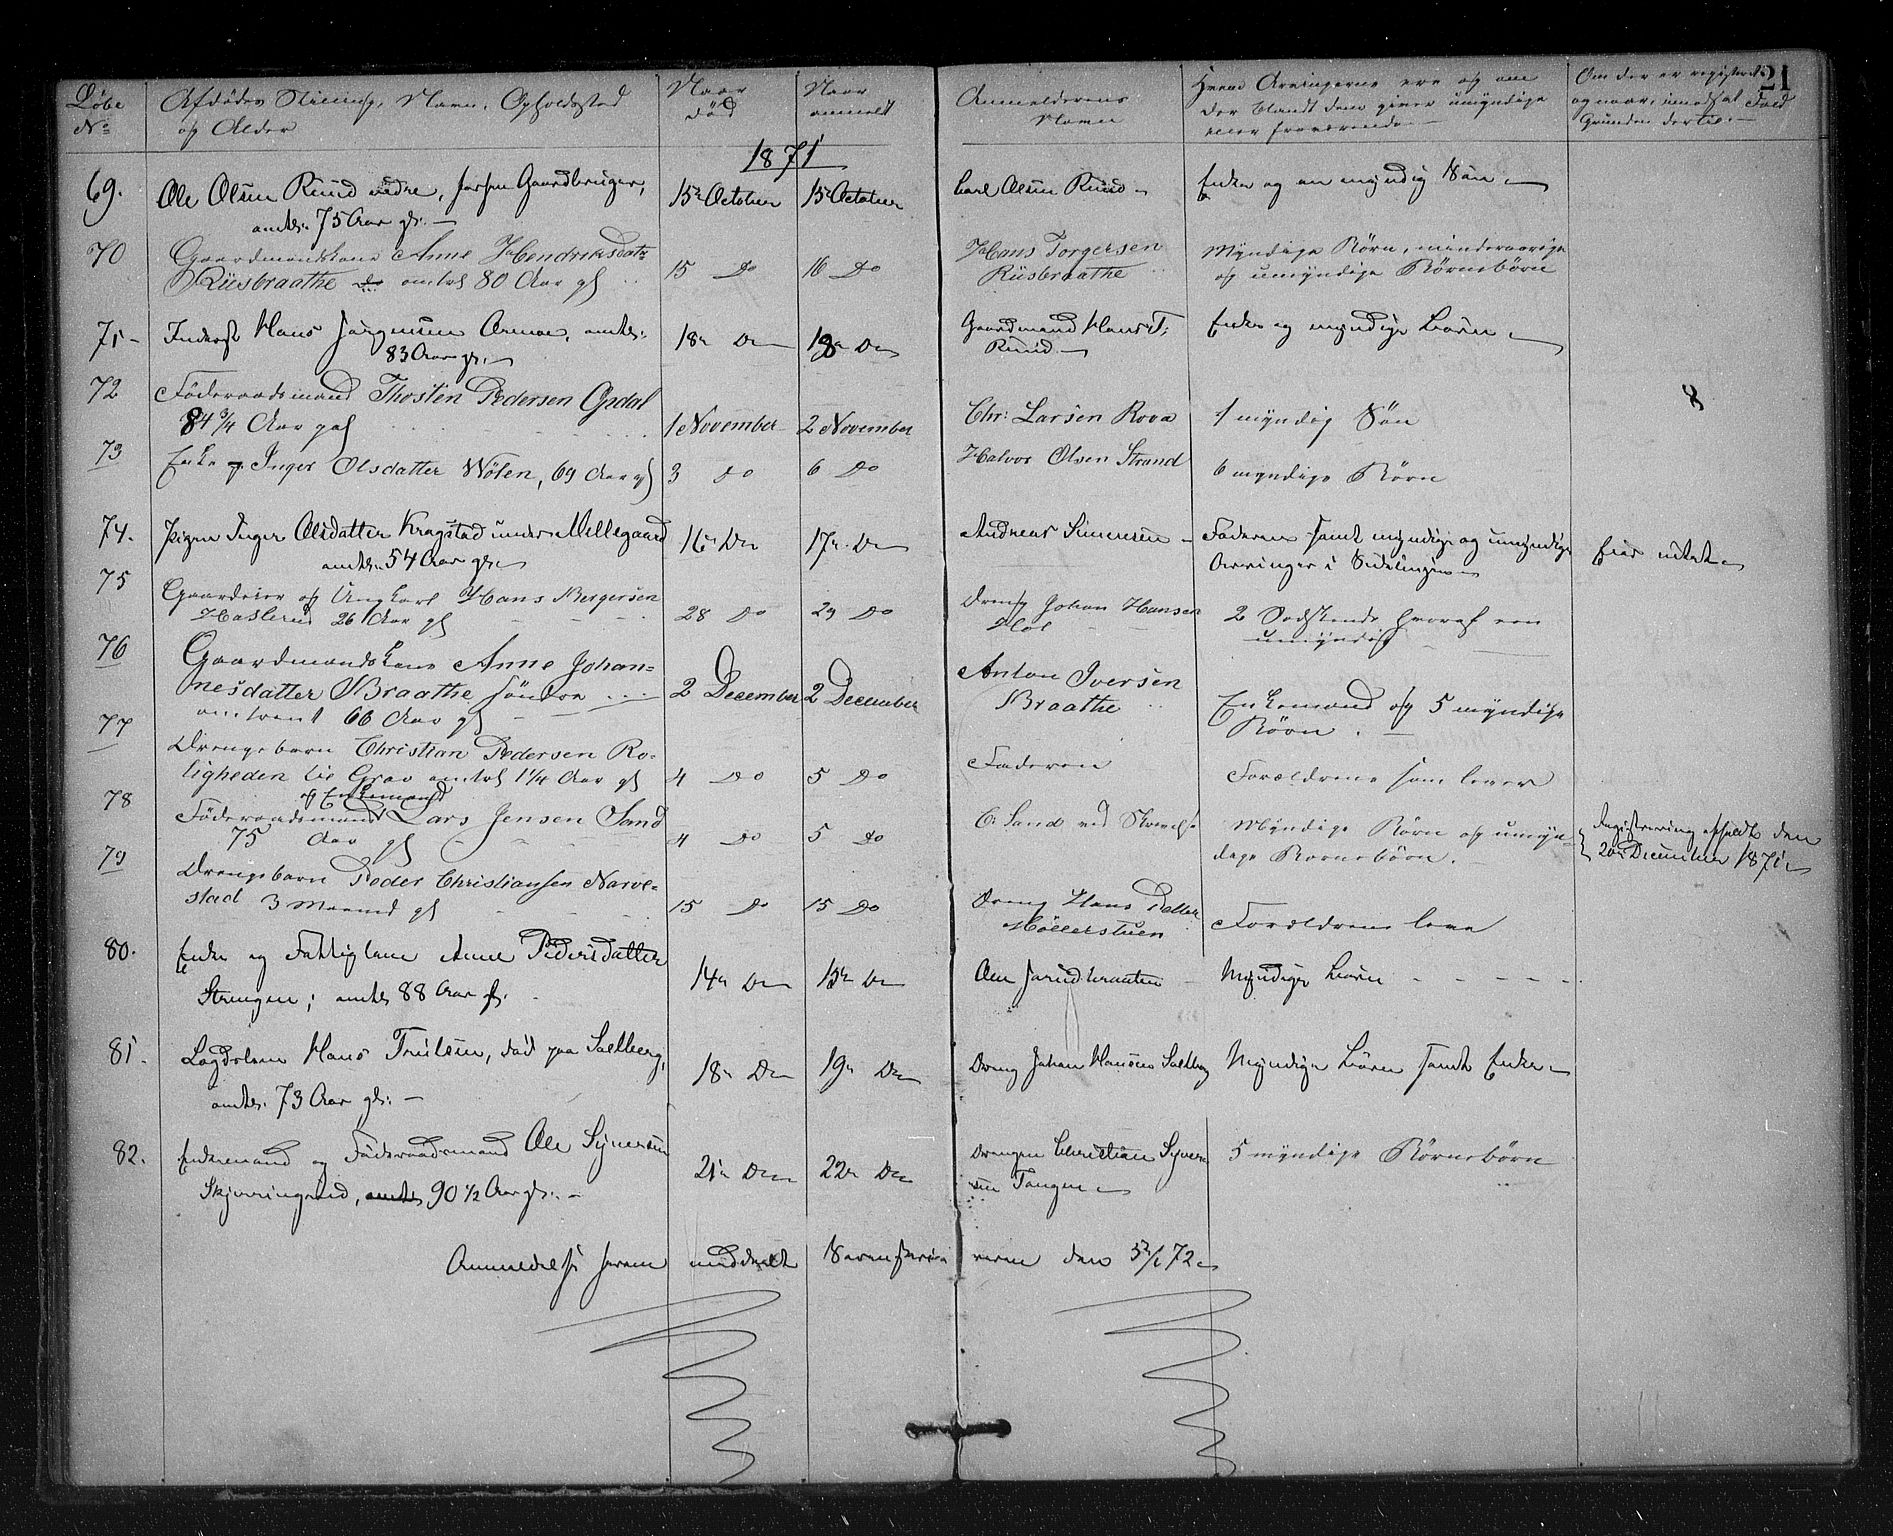 21
Løbe Afdødes Stilling, Navn, Opholdssted Naar Naar Anmelderens Hvem Arvingerne ere og om Om der er registreret
No og Alder død anmeldt Navn der blandt dem gives umyndige og naar, i modsat Fald
eller fraværende Grunden dertil.
1871
69. Ole Olsen Ruud nedre, Gaardbruger, 15de October 15de October Carl Olsen Ruud Enke og en myndig Søn
omtr. 75 Aar gl.
70 Gaardmandskone Anne Hendriksdatr Hans Torgersen Myndige Børn, mindreaarige
Riisbraathe omtrt 80 Aar gl 15 Do 16 Do Riisbraathe og umyndige Børnebørn
71 Inderst Hans Jørgensen omtr. 18de Do 18de Do Gaardmand Hans T. Enke og myndige Børn
83 Aar gl. Ruud
72 Føderaadsmand Thostén Pedersen Opdal 8
84 3/4 Aar gal 1 November 2 November Chr: Larsen Rova 1 myndig Søn
73 Enke Inger Olsdatter Nølen, 69 Aar gl 3 Do 6 Do Halvor Olsen Strand 6 myndige Børn
74. Pigen Inger Olsdatter Kragstad under Mellegaard 16de Do 17de Do Andreas Simensen Faderen samt myndige og umyndige Eier intet
omtr. 54 Aar gl. Arvinger i Sidelinjen
75 Gaardeier og Ungkarl Hans Bergersen Dreng Johan Hansen 2 Sødskende hvoraf een
Haslerud 26 Aar gl 28 Do 29 Do Hol umyndig
76 Gaardmandskone Anne Johan=
nesdatter Braathe søndre 2 December 2 December Anton Iversen Enkemand og 5 myndige
omtrent 66 Aar gl Braathe Børn.
77 Drengebarn Christian Pedersen Ro-
ligheden til Grav omtrt 1 1/4 Aar gl 4 Do 5 Do Faderen Forældrene som lever
og Enkemand
78 Føderaadsmand Lars Jensen Sand C. Sand ved Myndige Børn og umyn- Registrering afholdt den
75 Aar gl 4 Do 5 Do dige Bornebörn. 20de December 1871
79 Drengebarn Peder Christiansen Narve-
stad 3 Maaned gl 15 Do 15 Do Dreng Hans Petter Forældrene leve
Møllerstuen
80. Enke og Fattiglem Anne Pedersdatter 14de Do 15de Do Myndige Børn
Strengen; omtr 88 Aar gl.
81. Lægdslem Hans Trulsen, død paa Saltberg, 18de Do 19de Do Dreng Johan Hansen Saltberg Myndige Børn samt Enke
omtr. 73 Aar gl.
82. Enkemand og Føderaadsmand Ole Syversen 21de Do 22de Do Drengen Christian Syver- 5 myndige Börnebörn
omtr 90 1/2 Aar gl. sen Tangen
Anmeldelse herom meddeelt Sorenskriveren den 5te/1 72